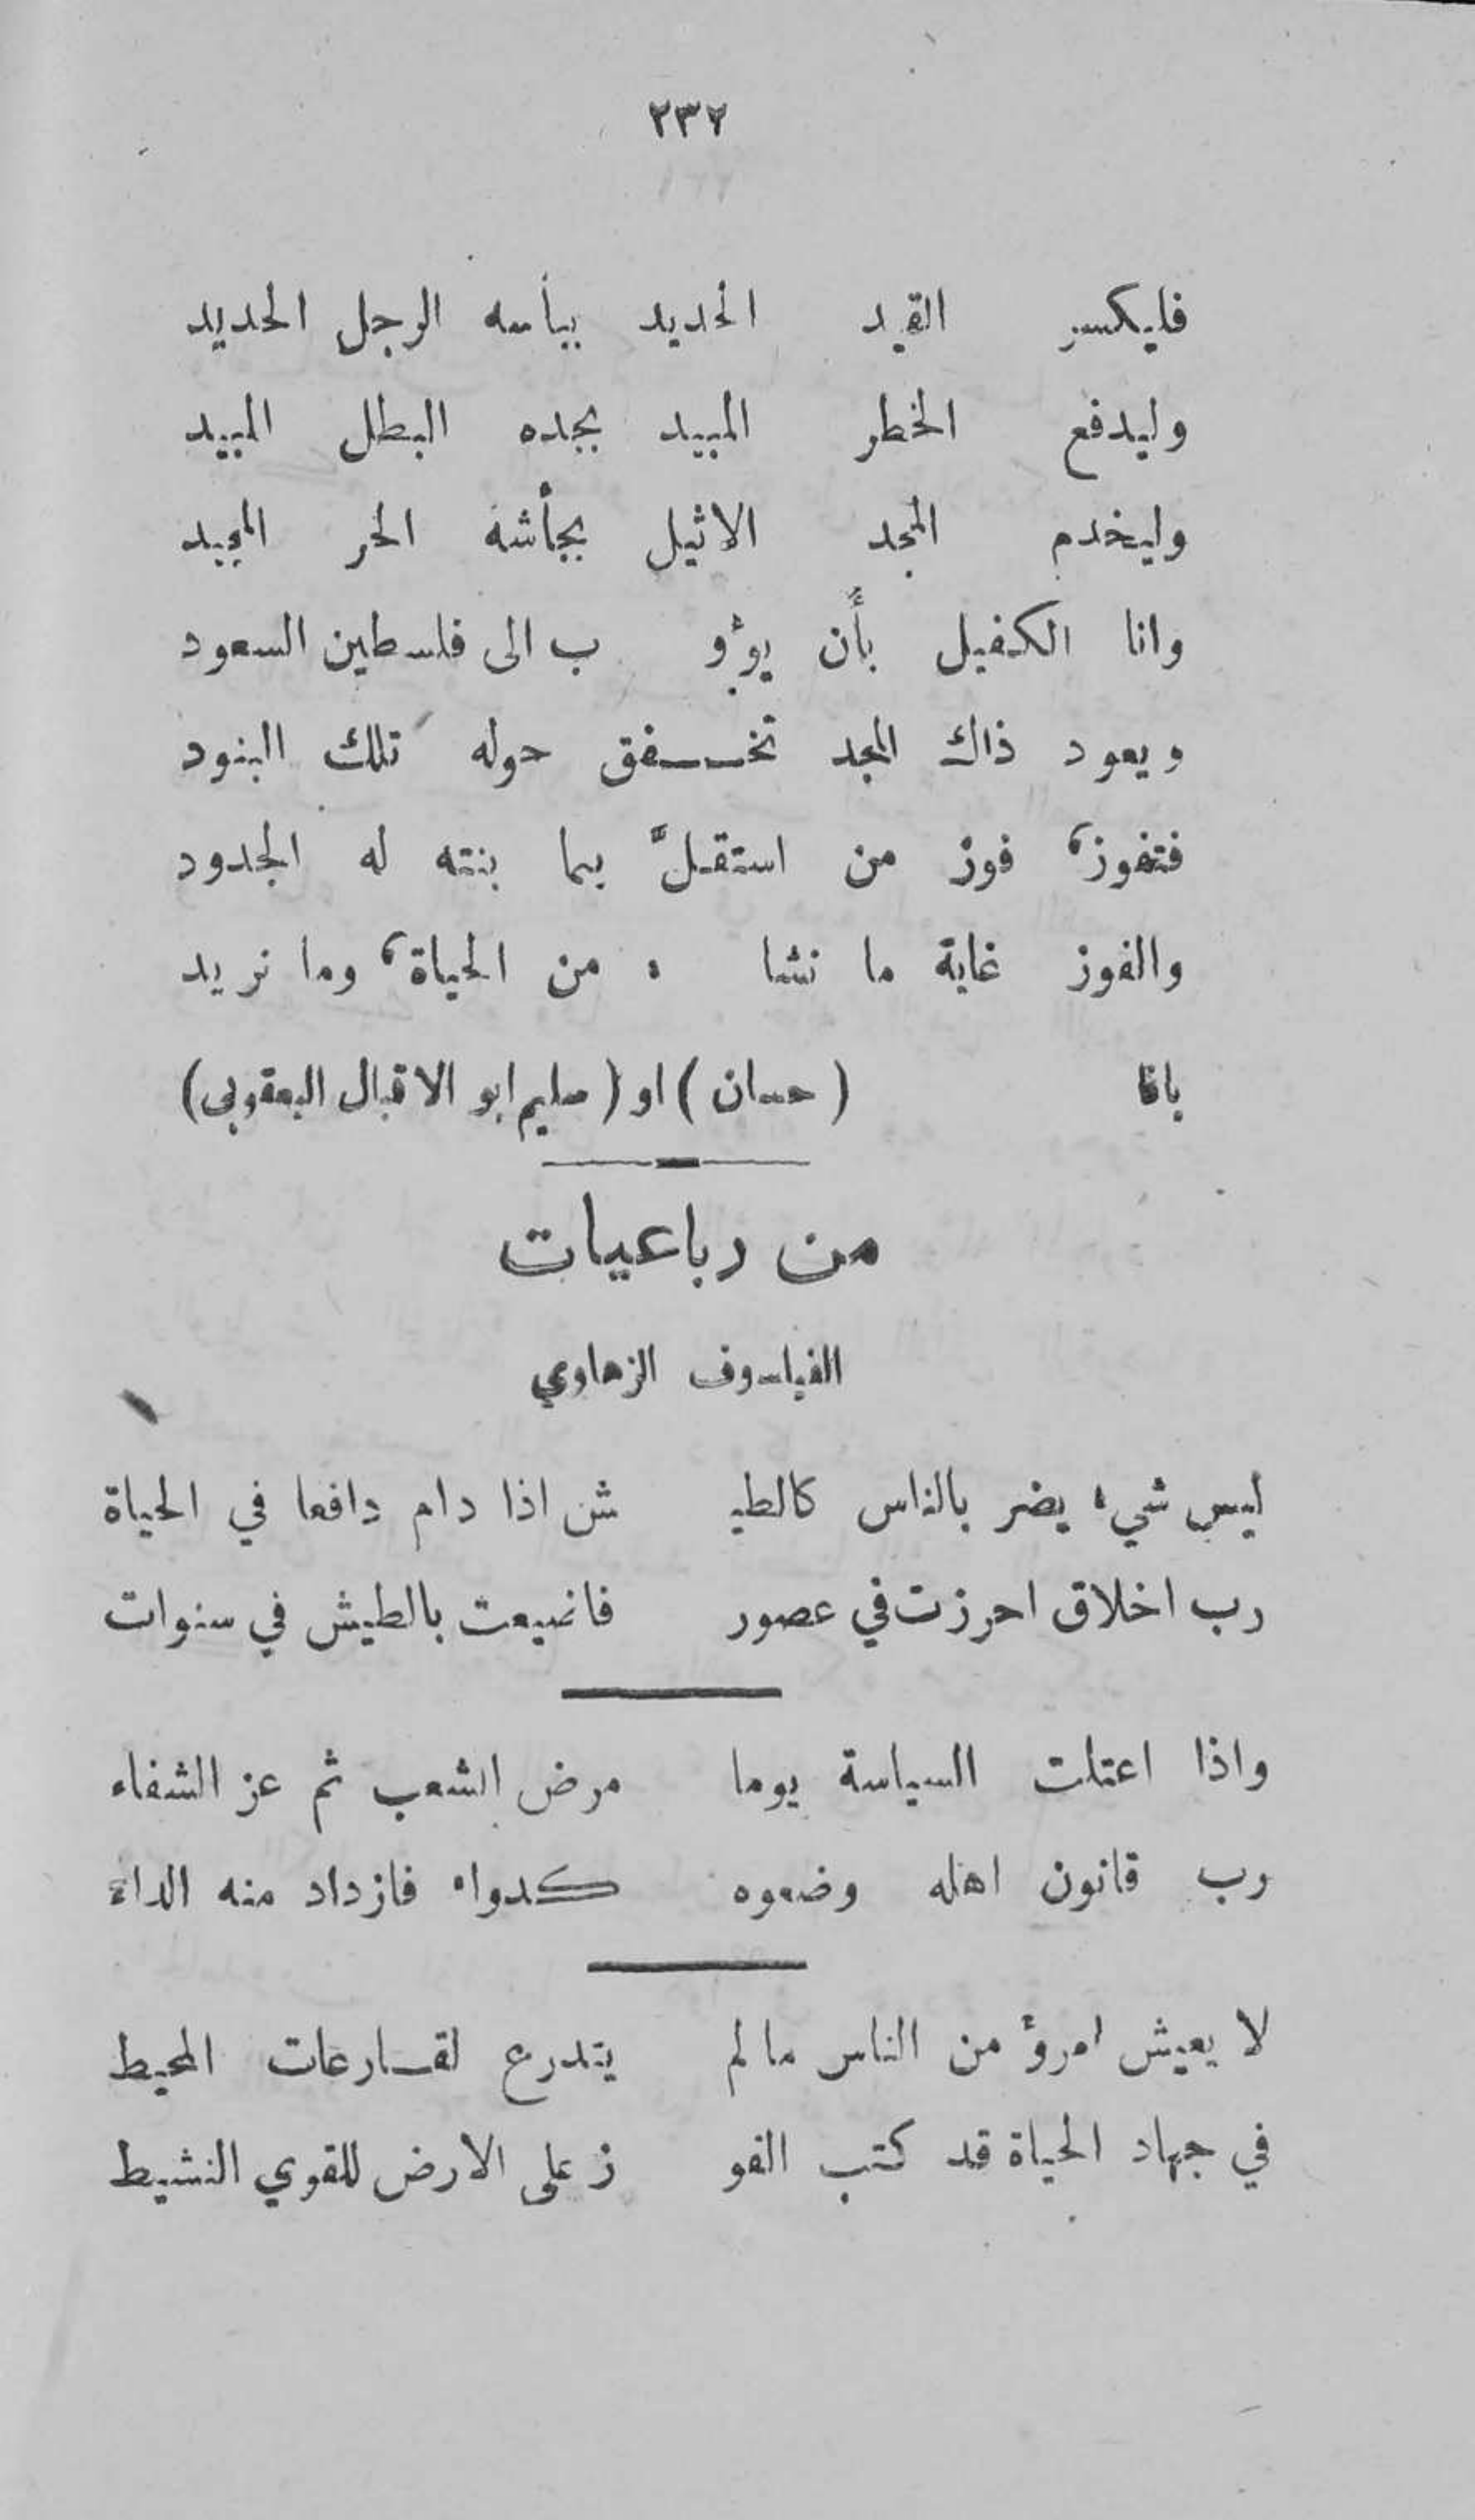 ٢٣٢
فليكسر القيد الحديد ببأسه الرجل الحديد
وليدفع الخطر المبيد بجده البطل المبيد
وليخدم المجد الاثيل بجأشه الحر المجيد
وانا الكفيل بأن يوؤ ب الى فلسطين السعود
ويعود ذاك المجد تخـفق حوله تلك البنود
فتفوز، فوز من استقلَّ بما بنته له الجدود
والفوز غاية ما نشا ء من الحياة، وما نريد
يافا (حسان) او (سليم ابو الاقبال اليعقوبي)
من رباعيات
الفيلسوف الزهاوي
ليس شيء يضر بالناس كالطيـ ش اذا دام دافعا في الحياة
رب اخلاق احرزت في عصور فاضيعت بالطيش في سنوات
واذا اعتلت السياسة يوما مرض الشعب ثم عز الشفاء
رب قانون اهله وضعوه كدواء فازداد منه الداء
لا يعيش امرؤ من الناس ما لم يتدرع لقـارعات المحيط
في جهاد الحياة قد كتب الفو ز على الارض للقوي النشيط